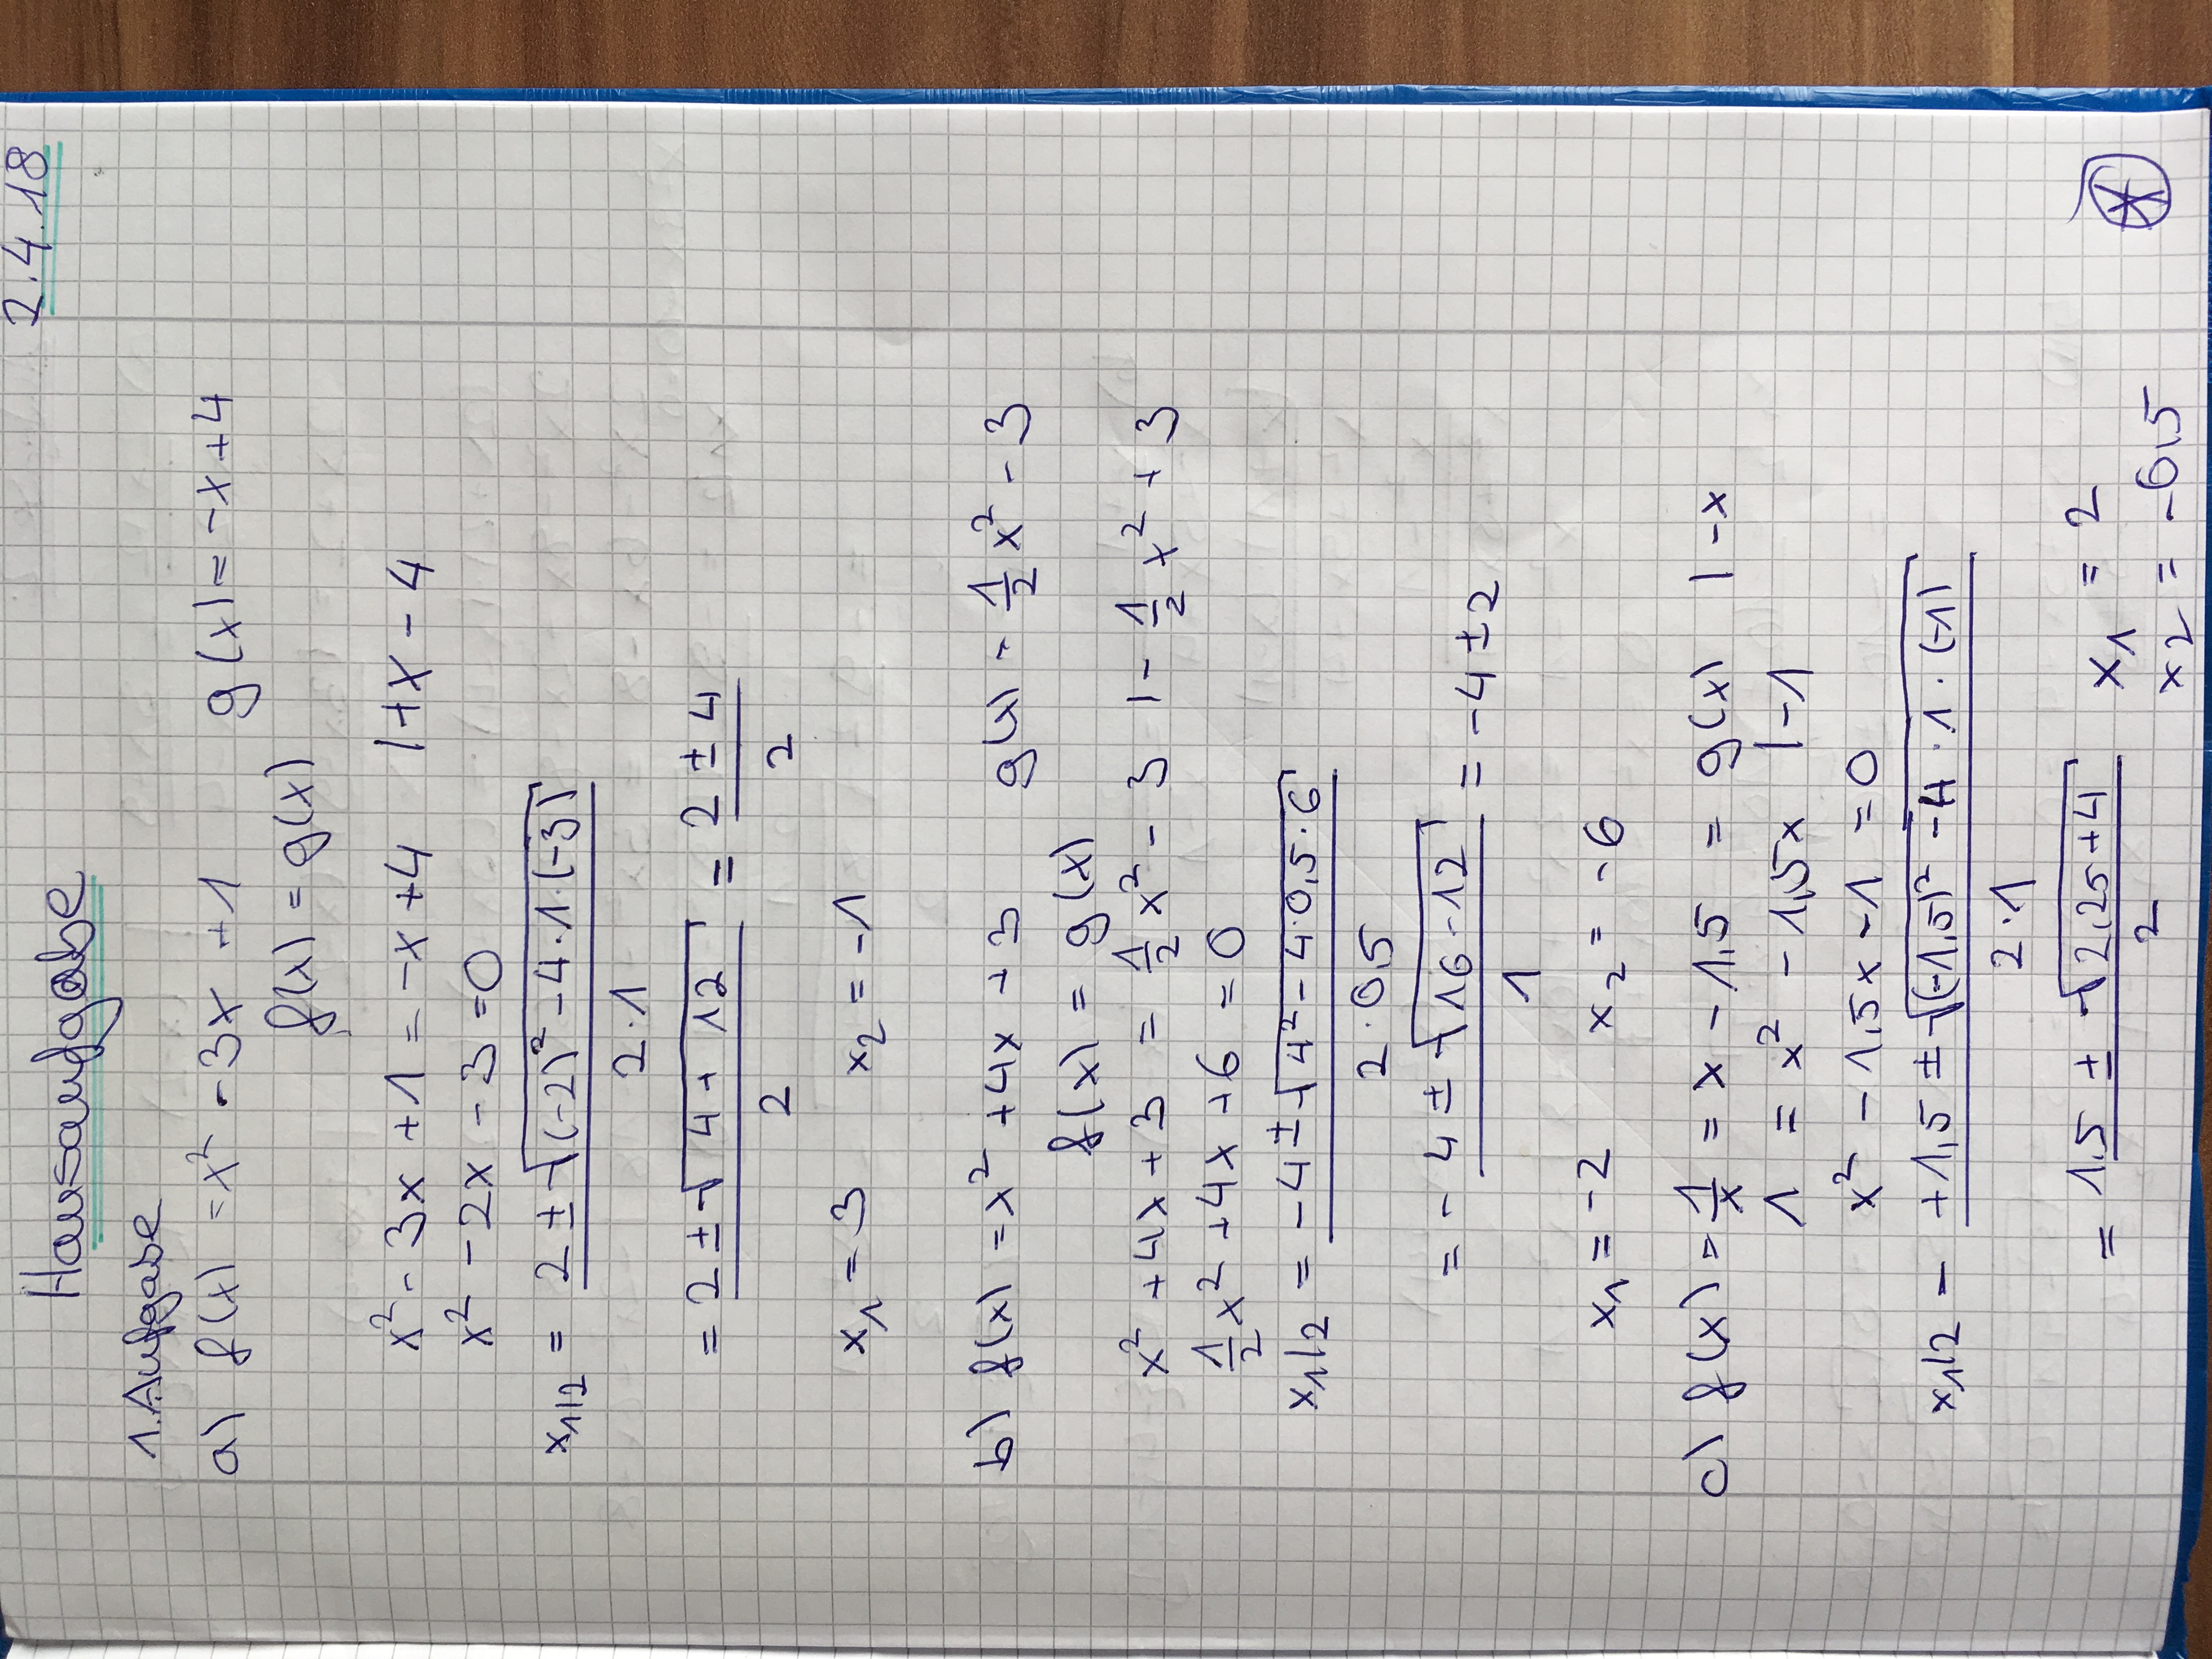 2.4.18
Hausaufgabe
1. Aufgabe
a) f(x) = x² - 3x + 1 g(x) = -x + 4
f(x) = g(x)
x² - 3x + 1 = -x + 4 | +x - 4
x² - 2x - 3 = 0
x₁|₂ = (2 ± √((-2)² - 4 · 1 · (-3))) / (2 · 1)
= (2 ± √(4 + 12)) / 2 = (2 ± 4) / 2
x₁ = 3 x₂ = -1
b) f(x) = x² + 4x + 3 g(x) = ½x² - 3
f(x) = g(x)
x² + 4x + 3 = ½x² - 3 | - ½x² + 3
½x² + 4x + 6 = 0
x₁|₂ = (-4 ± √(4² - 4 · 0,5 · 6)) / (2 · 0,5)
= (-4 ± √(16 - 12)) / 1 = -4 ± 2
x₁ = -2 x₂ = -6
c) f(x) = 1/x = x - 1,5 = g(x) | · x
1 = x² - 1,5x | -1
x² - 1,5x - 1 = 0
x₁|₂ = (+1,5 ± √((-1,5)² - 4 · 1 · (-1))) / (2 · 1)
= (1,5 ± √(2,25 + 4)) / 2 x₁ = 2
x₂ = -0,5